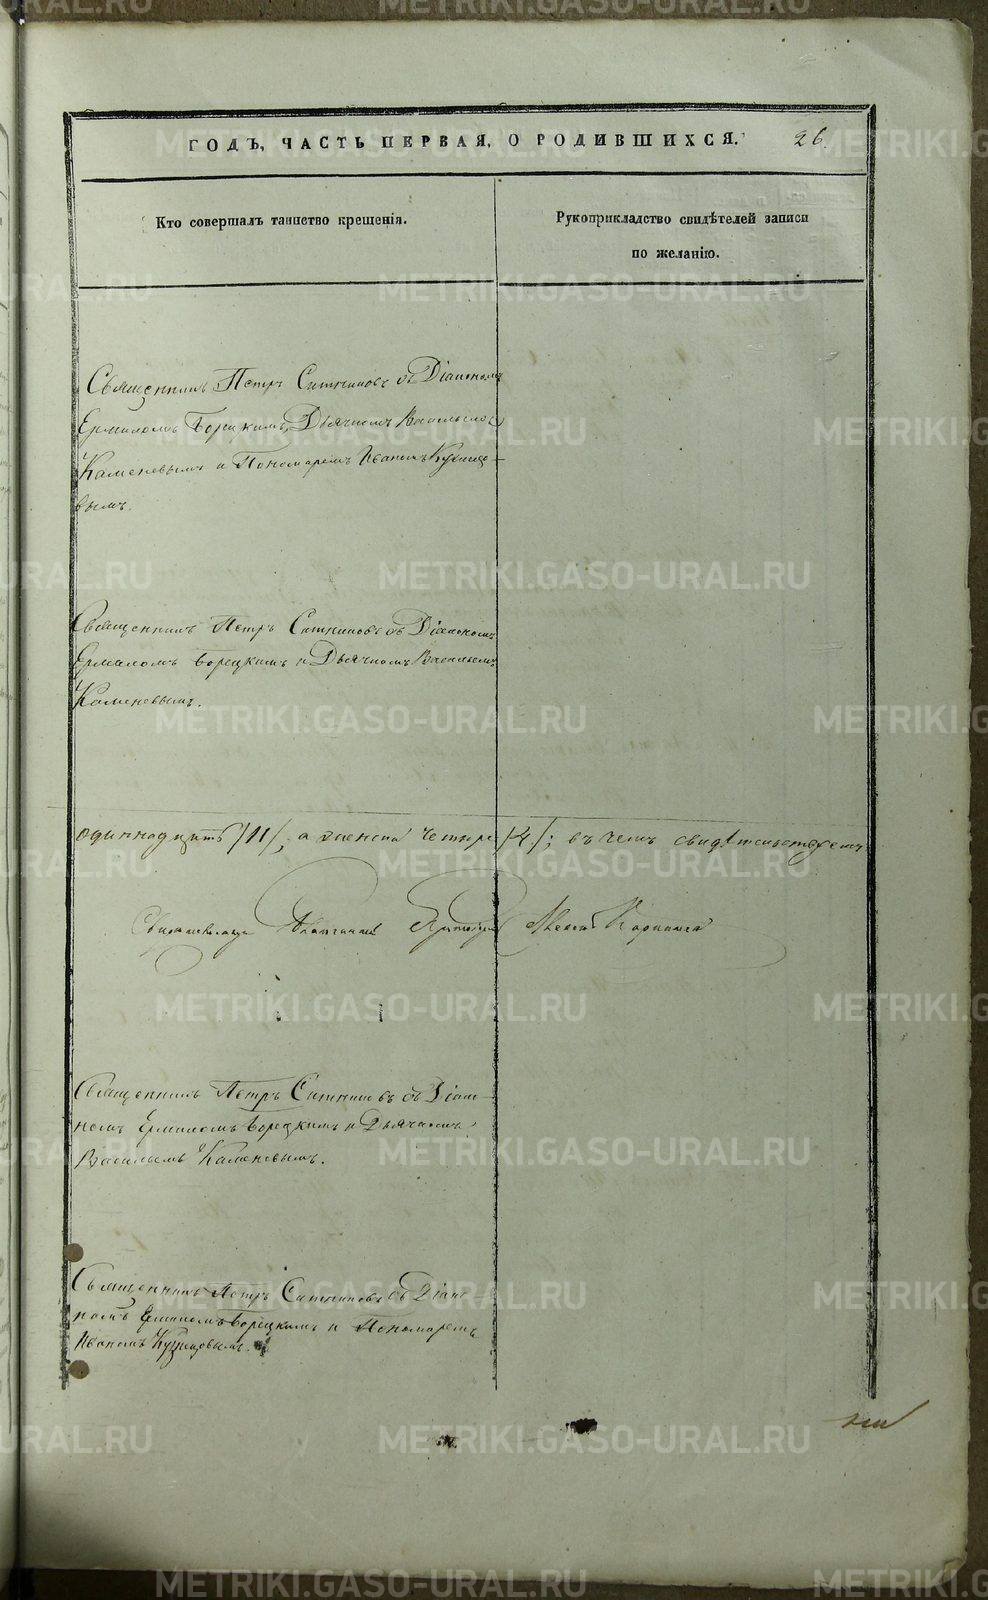 ГОДЪ, ЧАСТЬ ПЕРВАЯ, О РОДИВШИХСЯ. 26.
Кто совершалъ таинство крещенія.
Рукоприкладство свидѣтелей записи
по желанію.
Священникъ Петръ Ситниковъ съ Діакономъ
Ермиломъ Борецкимъ, Дьячкомъ Васильемъ
Каменевымъ и Пономаремъ Иваномъ Кузнецо-
вымъ.
Священникъ Петръ Ситниковъ съ Діакономъ
Ермиломъ Борецкимъ и Дьячкомъ Васильемъ
Каменевымъ.
одиннадцать /11/, а женска четыре /4/; въ чемъ свидѣтельствуемъ
Священникъ Петръ Ситниковъ съ Діако-
номъ Ермиломъ Борецкимъ и Дьячкомъ
Васильемъ Каменевымъ.
Священникъ Петръ Ситниковъ съ Діако-
номъ Ермиломъ Борецкимъ и Пономаремъ
Иваномъ Кузнецовымъ.
METRIKI.GASO-URAL.RU